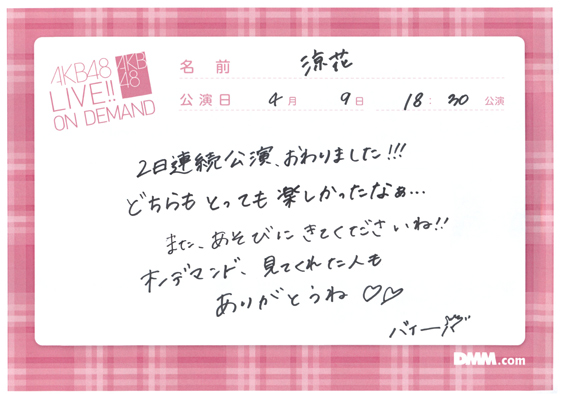 AKB48
LIVE!!
ON DEMAND
AKB
48
名前 涼花
公演日 4月 9日 18:30 公演
2日連続公演、おわりました!!!
どちらもとっても楽しかったなぁ…
また、あそびにきてくださいね!!
オンデマンド、見てくれた人も
ありがとうね♡♡
バイー
DMM.com